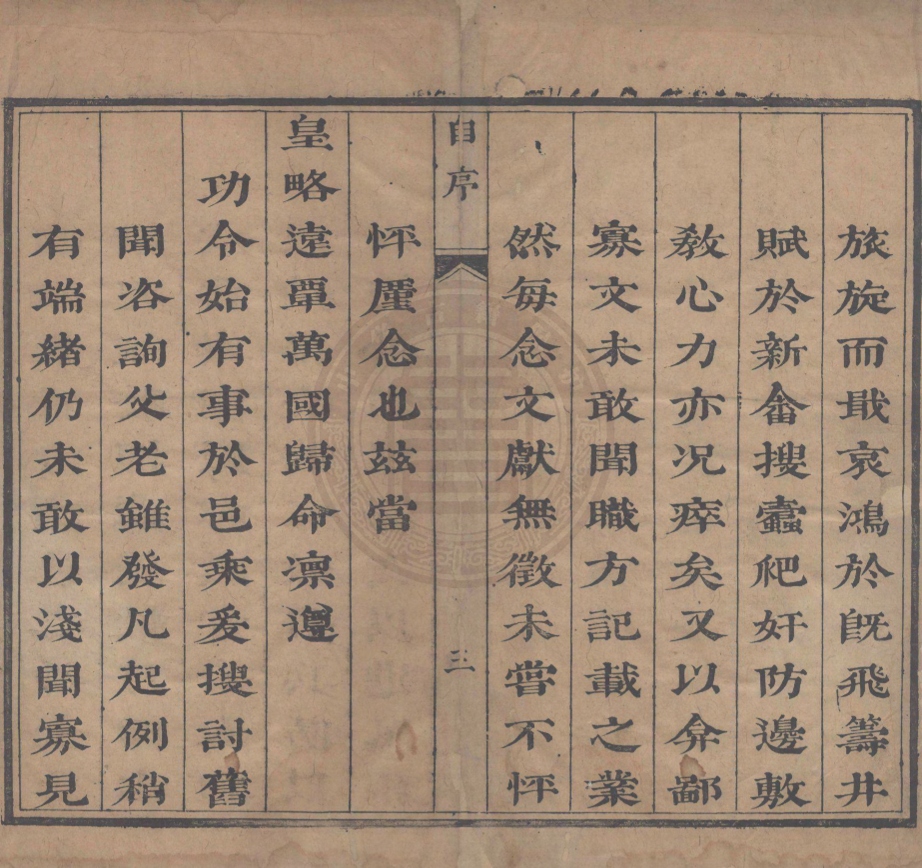 旅旋而戢哀鴻於既飛籌井
賦於新畬搜蠹爬奸防邊敷
教心力亦况瘁矣又以弇鄙
寡文未敢聞職方記載之業
然每念文獻無徵未嘗不怦
自序
三
怦厪念也茲當
皇略遠覃萬國歸命凛遵
功令始有事於邑乘爰搜討舊
聞咨詢父老雖發凡起例稍
有端緒仍未敢以淺聞寡見